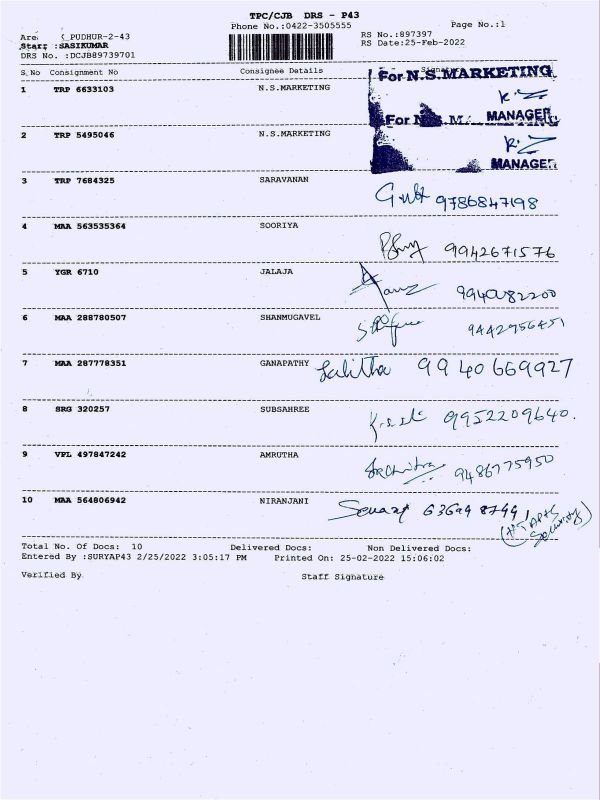 TPC/CJB DRS - P43
Phone No.:0422-3505555
Page No.:1
K_PUDHUR-2-43
RS No.:897397
Staff :SASIKUMAR
RS Date:25-Feb-2022
DRS No. :DCJB89739701
S.No Consignment No Consignee Details
1 TRP 6633103 N.S.MARKETING
For N.S.MARKETING
MANAGER
2 TRP 5495046 N.S.MARKETING
For N.S.M
MANAGER
3 TRP 7684325 SARAVANAN 9786847198
4 MAA 563535364 SOORIYA 9942671576
5 YGR 6710 JALAJA 9940082200
6 MAA 288780507 SHANMUGAVEL 9442956451
7 MAA 287778351 GANAPATHY Lalitha 9940669927
8 SRG 320257 SUBSAHREE 9952209640.
9 VPL 497847242 AMRUTHA 9486775950
10 MAA 564806942 NIRANJANI
Security
Total No. Of Docs: 10 Delivered Docs: Non Delivered Docs:
Entered By :SURYAP43 2/25/2022 3:05:17 PM Printed On: 25-02-2022 15:06:02
Verified By Staff Signature